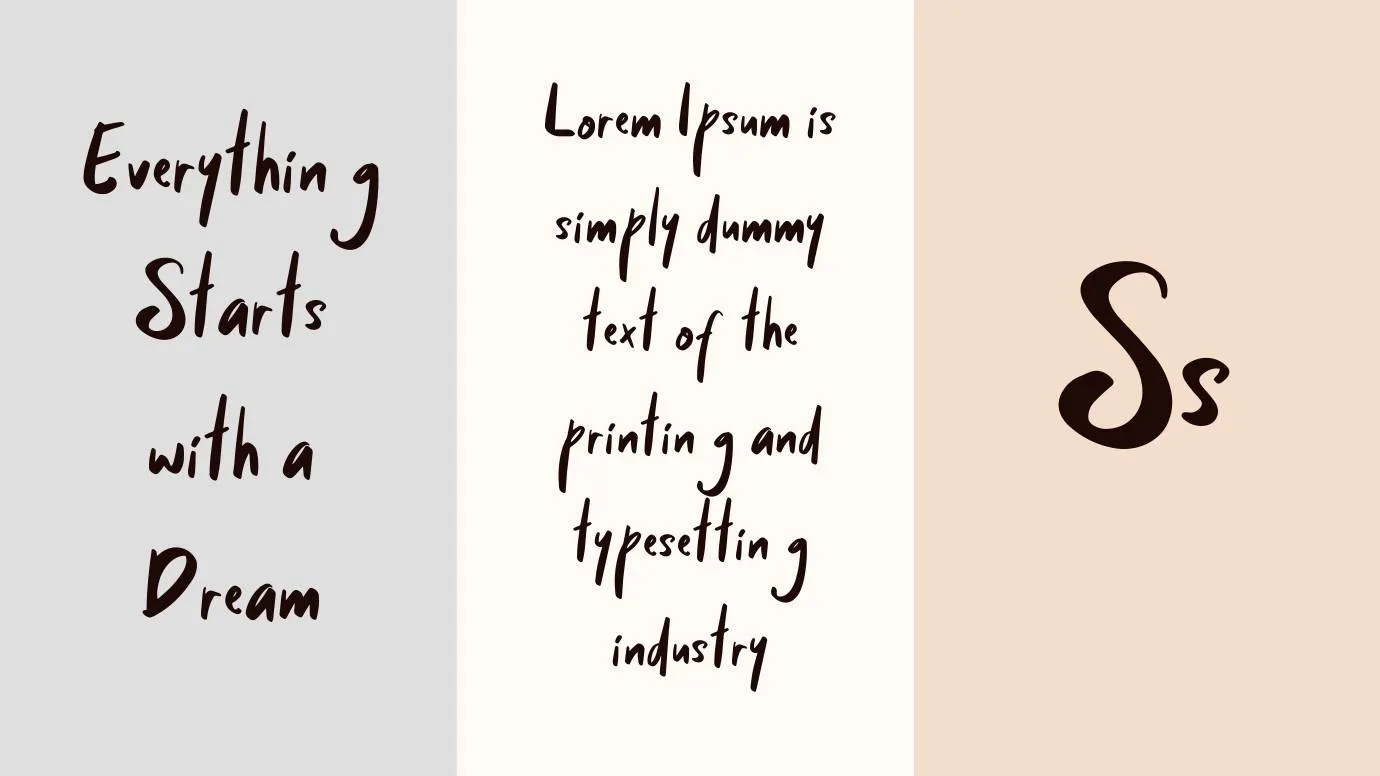 Everything
Starts
with a
Dream
Lorem Ipsum is
simply dummy
text of the
printing and
typesetting
industry
Ss